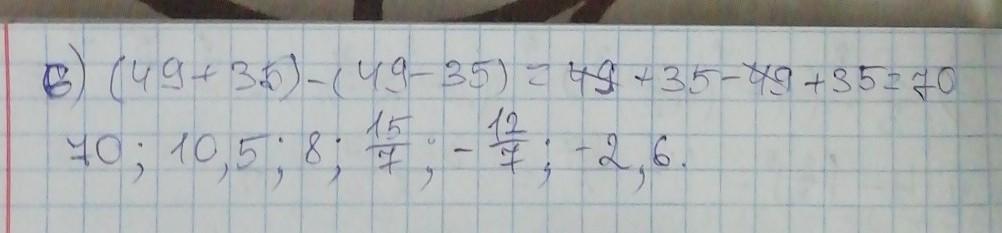 б) (49+35)-(49-35) = 49+35-49+35=70
70; 10,5; 8; 15/7; -12/7; -2,6.